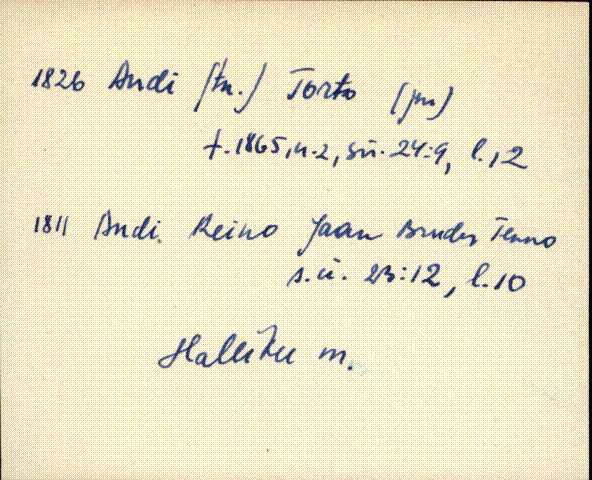 1826 Andi (tn.) Torto (pn)
f. 1865, n. 2, sü. 24:9, l. 12
1811 Andi Reino Jaan Bruder Tenno
s.ü. 23:12, l. 10
Halliku m.